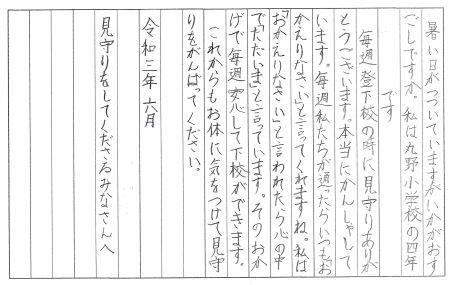 暑い日がつづいていますがいかがおす
ごしですか。私は九野小学校の四年
です
毎週登下校の時に見守りありが
とうございます。本当にかんしゃして
います。毎週私たちが通ったらいつも「お
かえりなさい」と言ってくれますね。私は
「おかえりなさい」と言われたら心の中
で「ただいま」と言っています。そのおか
げで毎週安心して下校ができます。
これからもお体に気をつけて見守
りをがんばってください。
令和三年六月
見守りをしてくださるみなさんへ